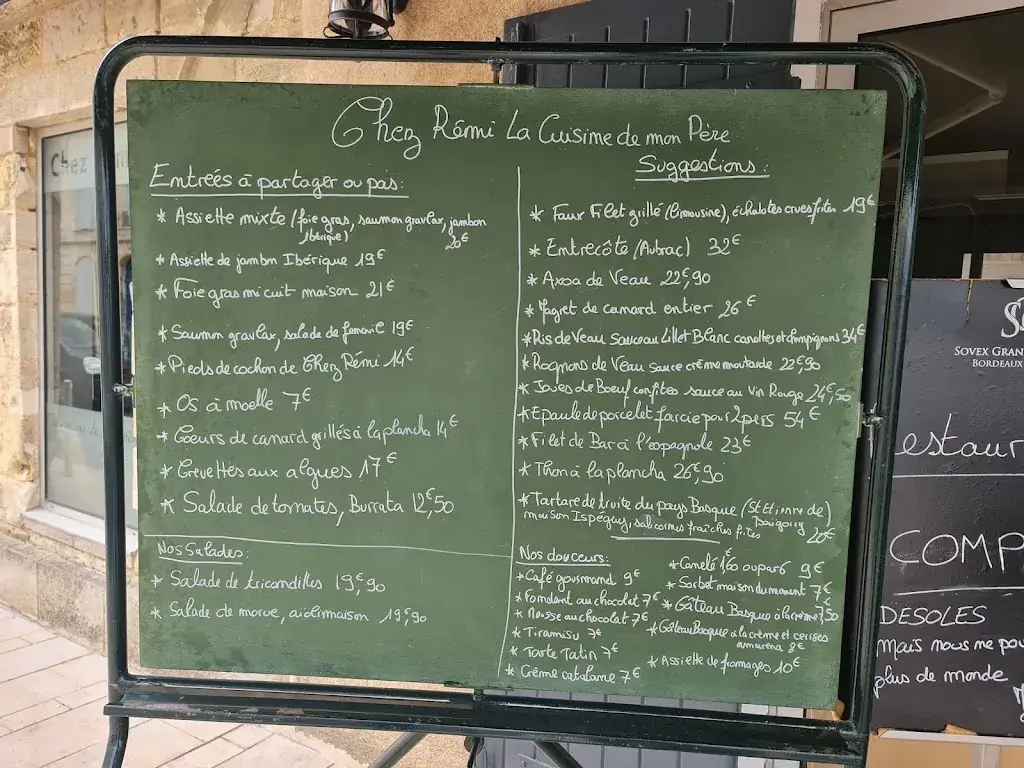 Chez Rémi La Cuisine de mon Père
Entrées à partager ou pas:
* Assiette mixte (foie gras, saumon gravlax, jambon
Ibérique) 20€
* Assiette de jambon Ibérique 19€
* Foie gras mi cuit maison 21€
* Saumon gravlax, salade de fenouil 19€
* Pieds de cochon de Chez Rémi 14€
* Os à moelle 7€
* Coeurs de canard grillés à la plancha 14€
* Crevettes aux algues 17€
* Salade de tomates, Burrata 12€,50
Nos Salades:
* Salade de tricandilles 19€,90
* Salade de morue, aïoli maison 19€,90
Suggestions:
* Faux Filet grillé (Limousine), échalotes crues frites 19€
* Entrecôte (Aubrac) 32€
* Axoa de Veau 22€,90
* Magret de canard entier 26€
* Ris de Veau sauce au Lillet Blanc carottes et champignons 34€
* Rognons de Veau sauce crème moutarde 22€,90
* Joues de Boeuf confites sauce au Vin Rouge 24€,50
* Epaule de porcelet farcie pour 2 pers 54€
* Filet de Bar à l'espagnole 23€
* Thon à la plancha 26€,90
* Tartare de truite du pays Basque (St Etienne de
maison Ispéguy, salicornes fraîches frites Baïgorry) 20€
Nos douceurs:
* Café gourmand 9€
* Fondant au chocolat 7€
* Mousse au chocolat 7€
* Tiramisu 7€
* Tarte Tatin 7€
* Crème catalane 7€
* Canelé 1€,60 ou par 6 9€
* Sorbet maison du moment 7€
* Gâteau Basque à la crème 7€,50
* Gâteau Basque à la crème et cerises
amarena 8€
* Assiette de fromages 10€
Chez
SOVEX GRAN
BORDEAUX
estaur
COMP
DESOLES
mais nous ne pou
plus de monde